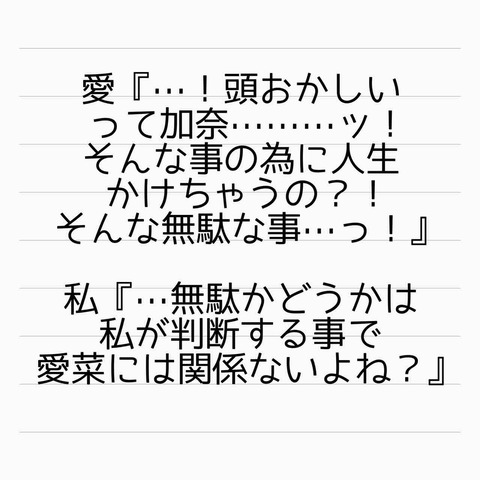 愛『…！頭おかしい
って加奈………ッ！
そんな事の為に人生
かけちゃうの？！
そんな無駄な事…っ！』
私『…無駄かどうかは
私が判断する事で
愛菜には関係ないよね？』